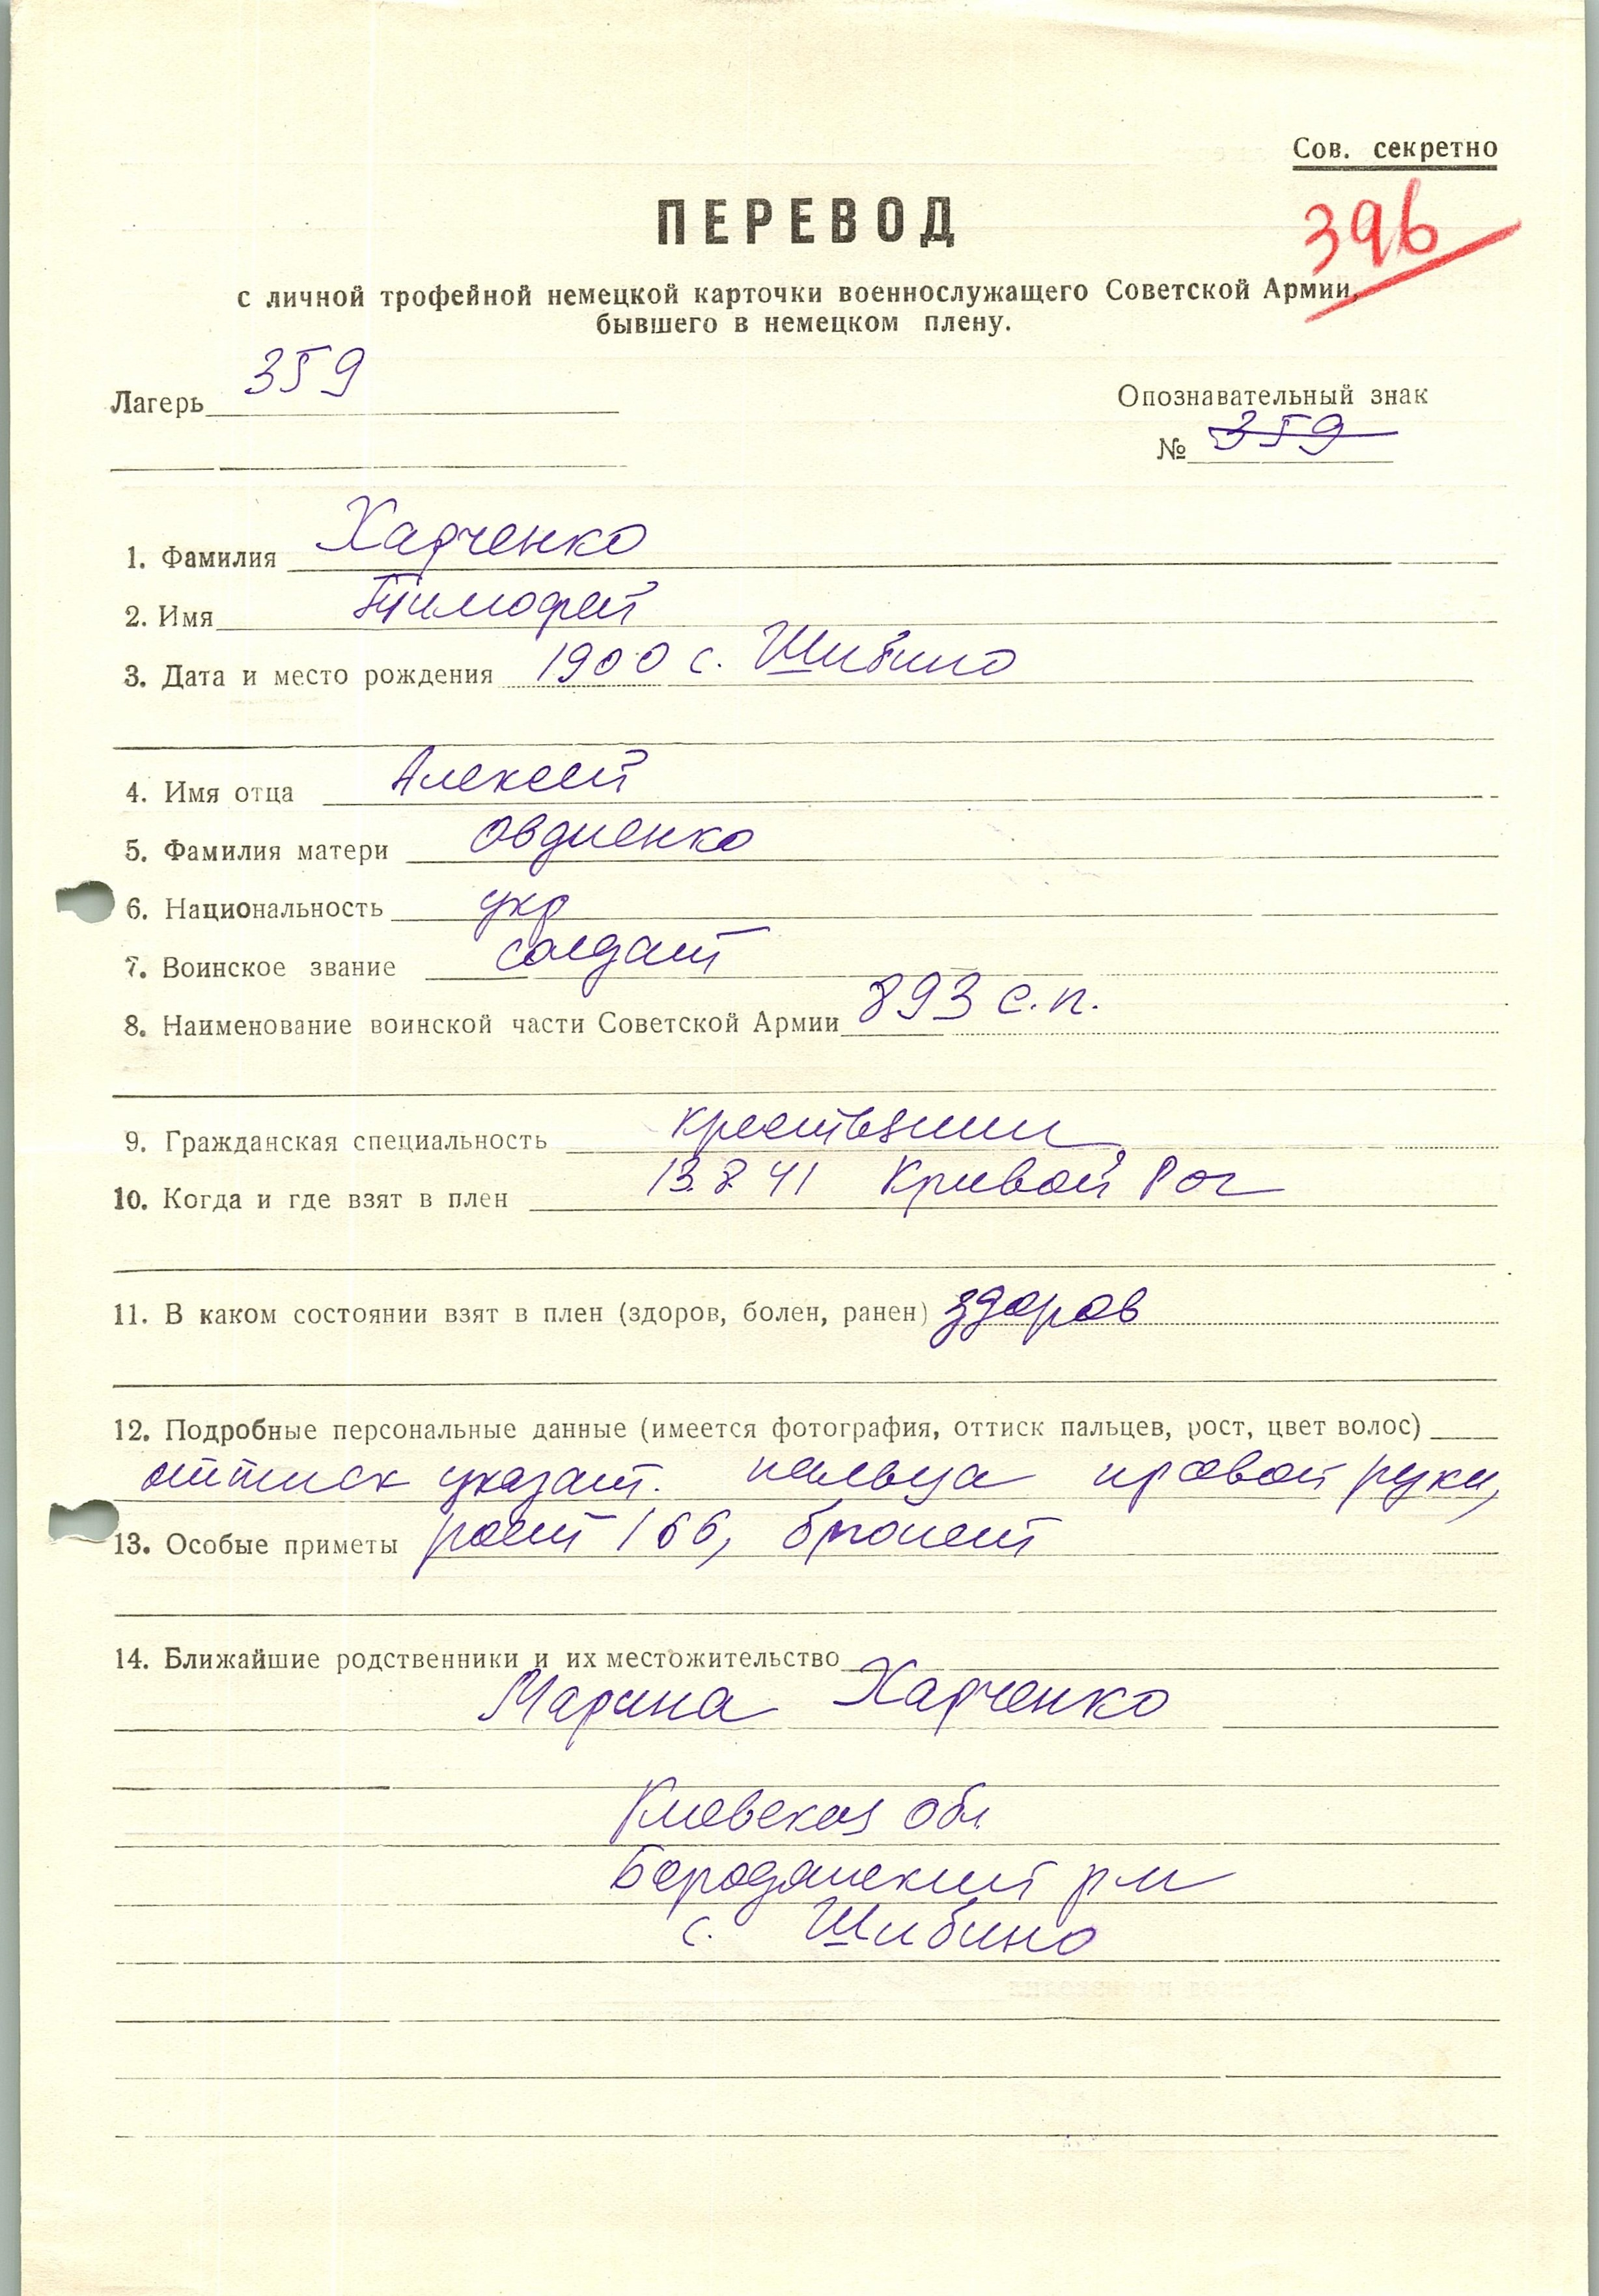 Сов. секретно
396
ПЕРЕВОД
с личной трофейной немецкой карточки военнослужащего Советской Армии,
бывшего в немецком плену.
Лагерь 359
Опознавательный знак
№ 359
1. Фамилия Харченко
2. Имя Тимофей
3. Дата и место рождения 1900 с. Шибино
4. Имя отца Алексей
5. Фамилия матери Овдиенко
6. Национальность укр
7. Воинское звание солдат
8. Наименование воинской части Советской Армии 893 с.п.
9. Гражданская специальность крестьянин
10. Когда и где взят в плен 13.8.41 Кривой Рог
11. В каком состоянии взят в плен (здоров, болен, ранен) здоров
12. Подробные персональные данные (имеется фотография, оттиск пальцев, рост, цвет волос)
оттиск указат. пальца правой руки,
13. Особые приметы рост 166, брюнет
14. Ближайшие родственники и их местожительство
Марина Харченко
Киевская обл.
Бородянский р-н
с. Шибино